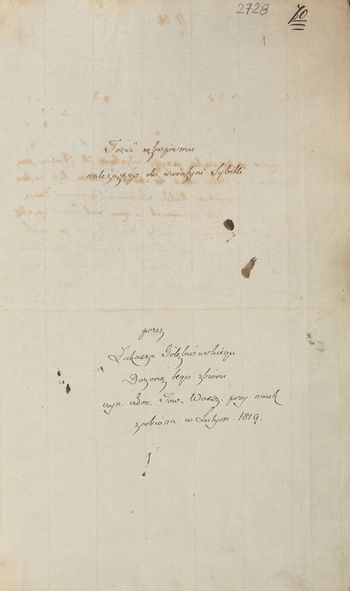 2728
70
1
Treść rękopismu
należącego do świątyni Sybilli
przez
Łukasza Gołębiowskiego
Dozorcę tego zbioru
czyn. człon. Tow. Warsz. przy. nauk
zrobiona w Lutym 1819.